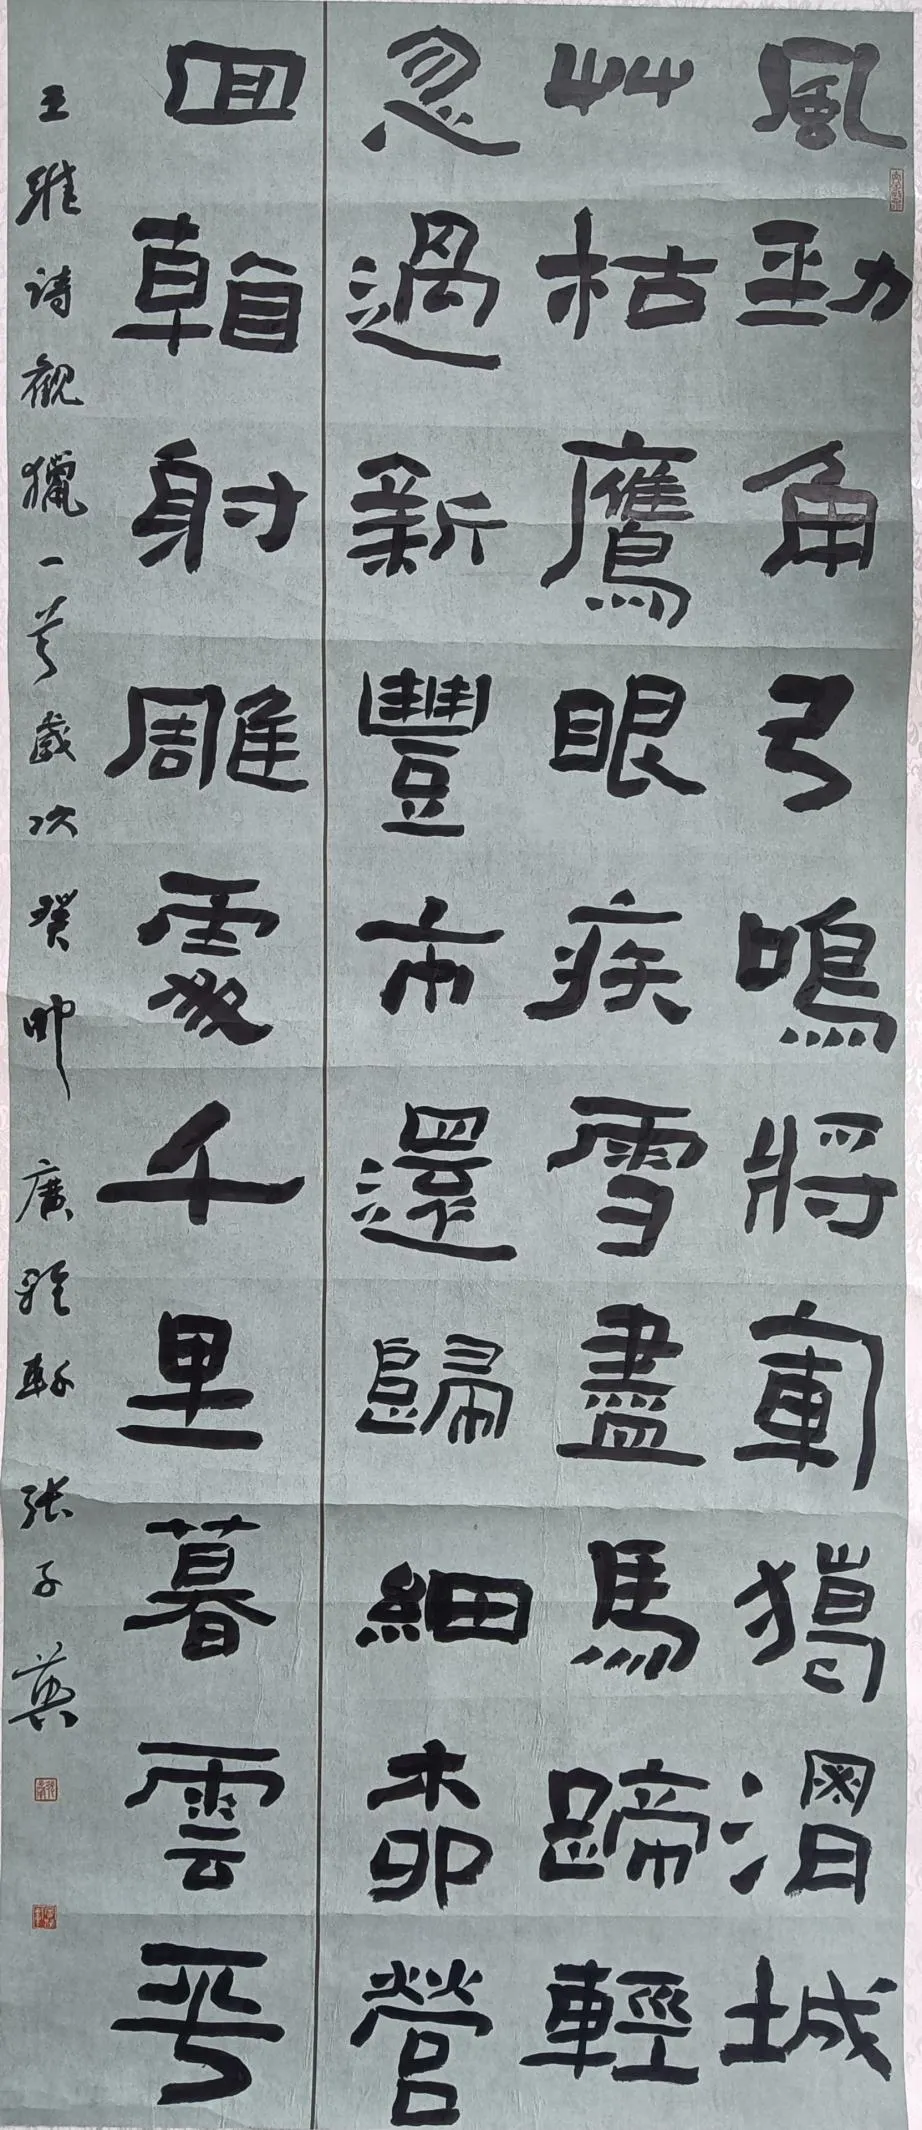 風勁角弓鳴將軍獵渭城
艸枯鷹眼疾雪盡馬蹄輕
忽過新豐市還歸細柳營
回看射雕處千里暮雲平
王維詩觀獵一首歲次癸卯廣雅軒張子英